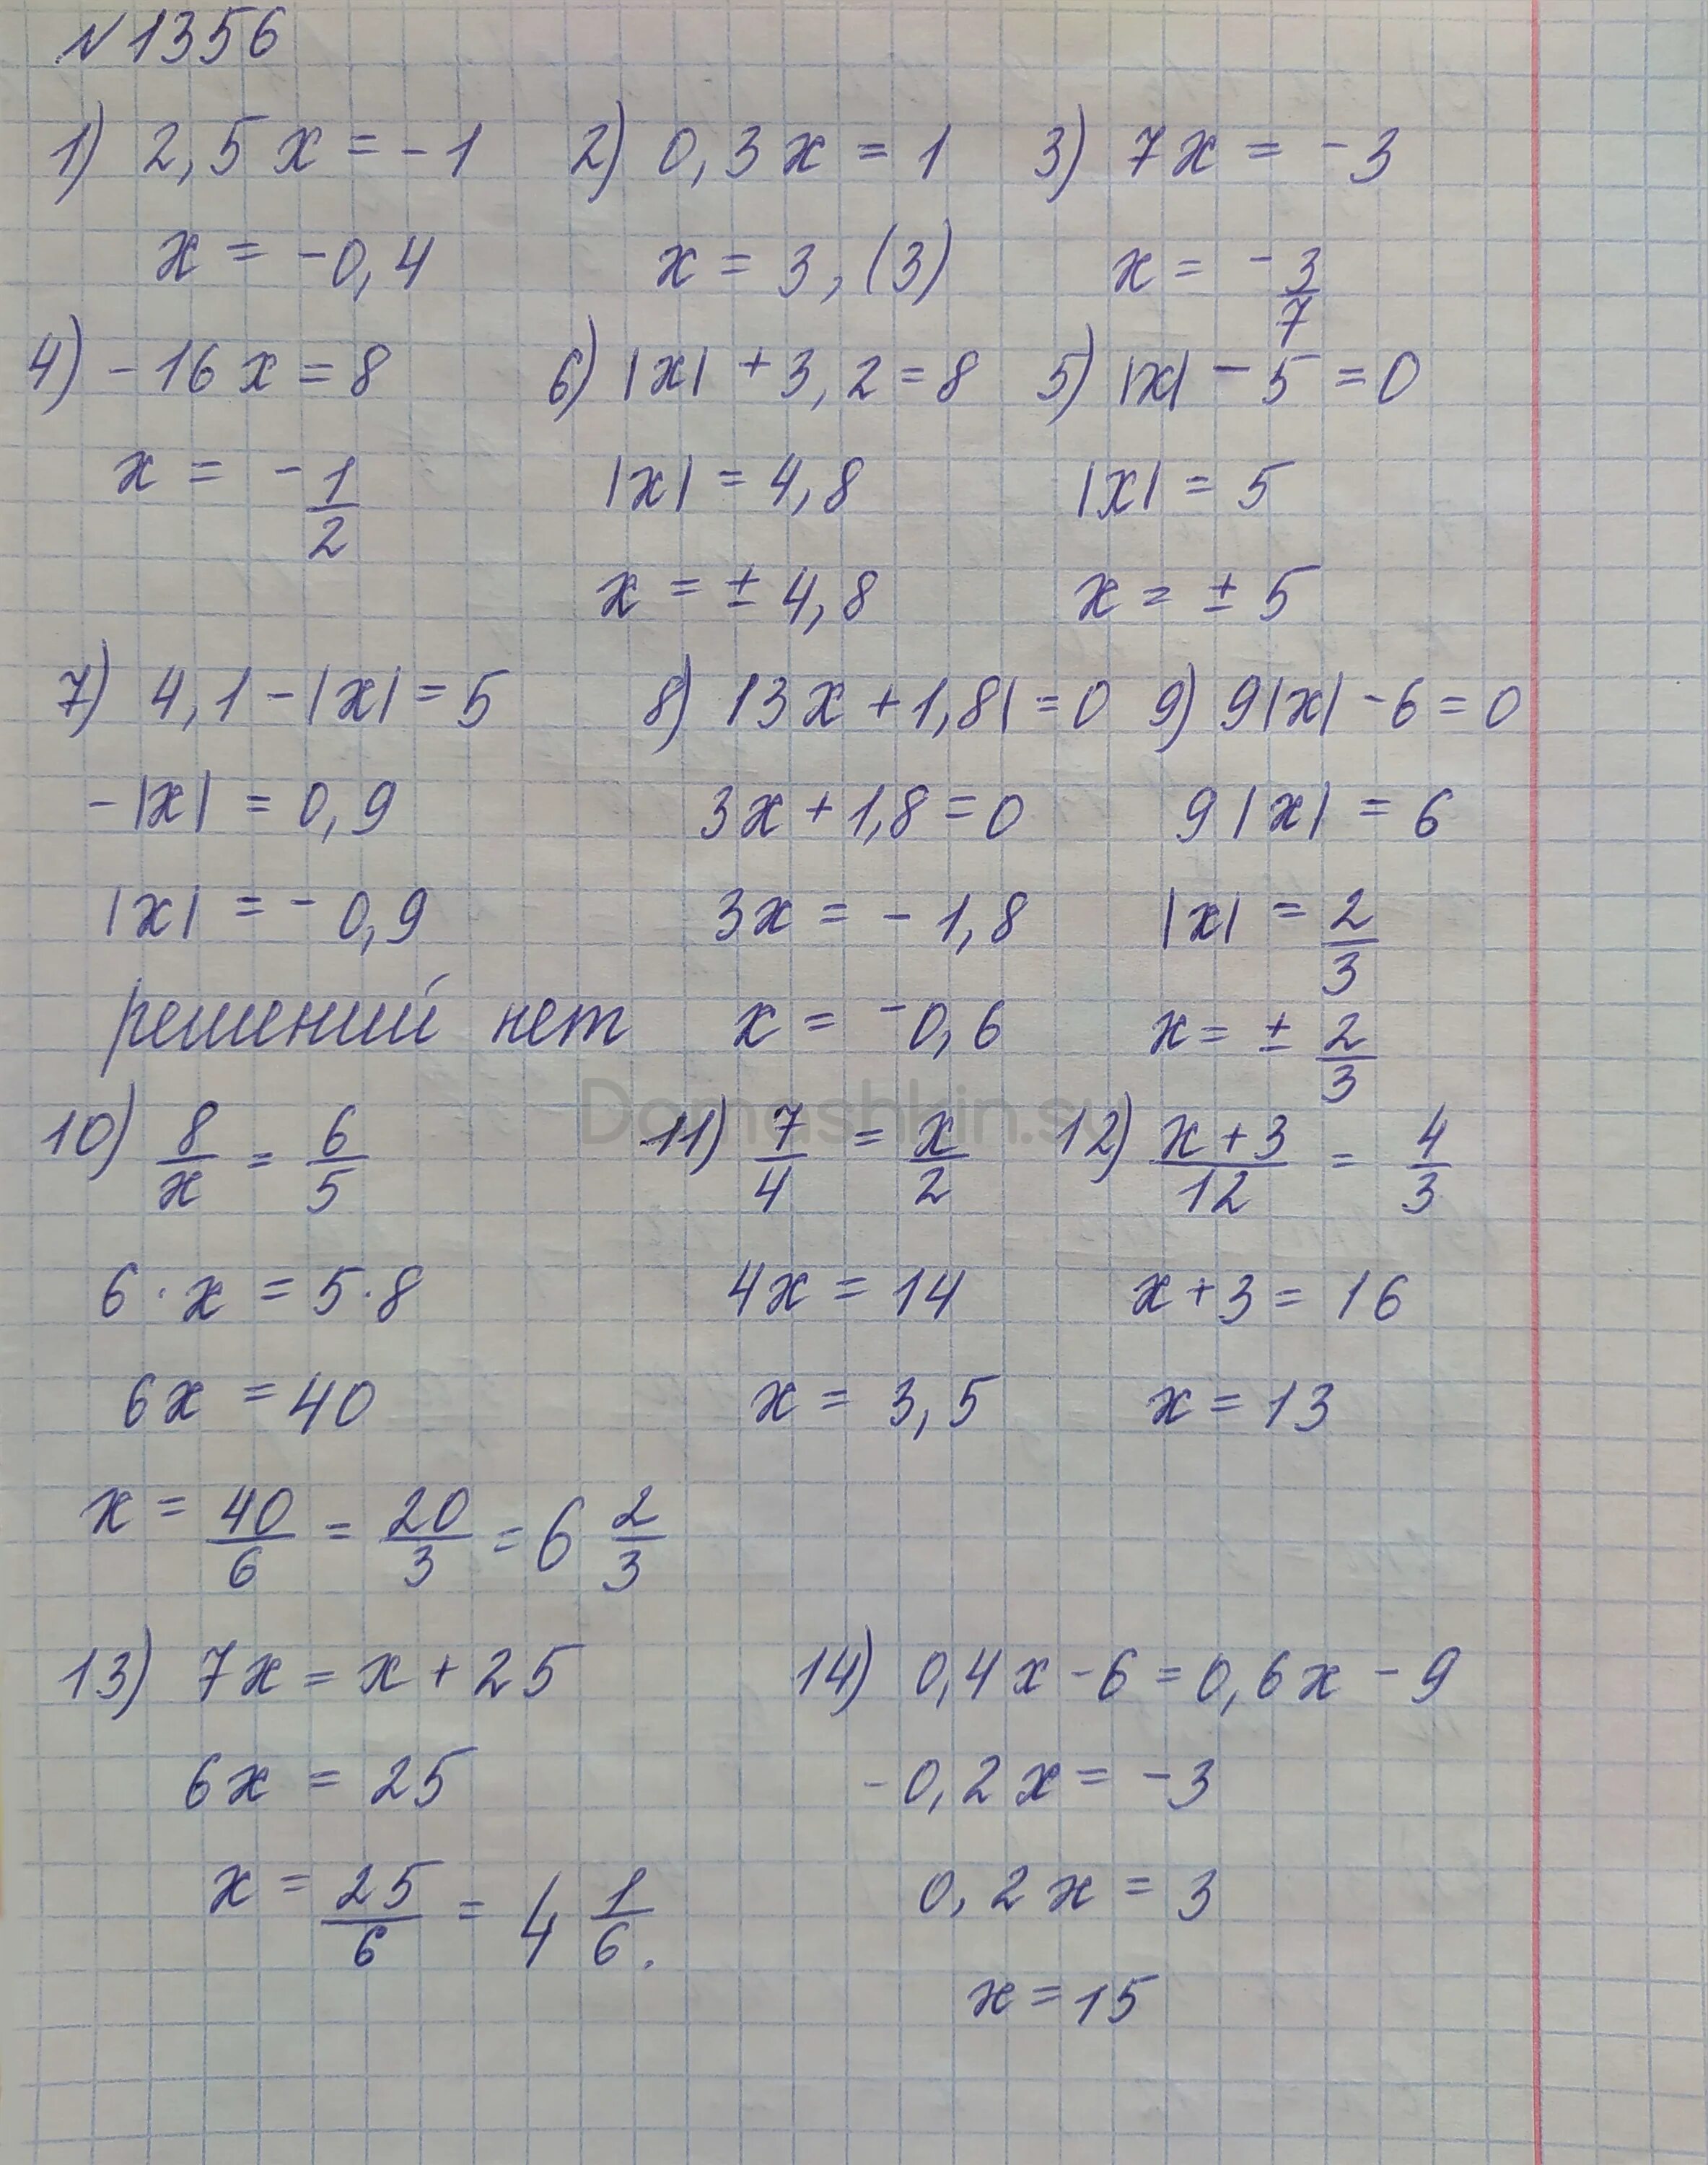 №1356
1) 2,5x = -1 2) 0,3x = 1 3) 7x = -3
x = -0,4 x = 3,(3) x = -3/7
4) -16x = 8 6) |x| + 3,2 = 8 5) |x| - 5 = 0
x = -1/2 |x| = 4,8 |x| = 5
x = ± 4,8 x = ± 5
7) 4,1 - |x| = 5 8) |3x + 1,8| = 0 9) 9|x| - 6 = 0
-|x| = 0,9 3x + 1,8 = 0 9|x| = 6
|x| = -0,9 3x = -1,8 |x| = 2/3
решений нет x = -0,6 x = ± 2/3
Domashkin.su
10) 8/x = 6/5 11) 7/4 = x/2 12) (x+3)/12 = 4/3
6·x = 5·8 4x = 14 x+3 = 16
6x = 40 x = 3,5 x = 13
x = 40/6 = 20/3 = 6 2/3
13) 7x = x + 25 14) 0,4x - 6 = 0,6x - 9
6x = 25 -0,2x = -3
x = 25/6 = 4 1/6. 0,2x = 3
x = 15